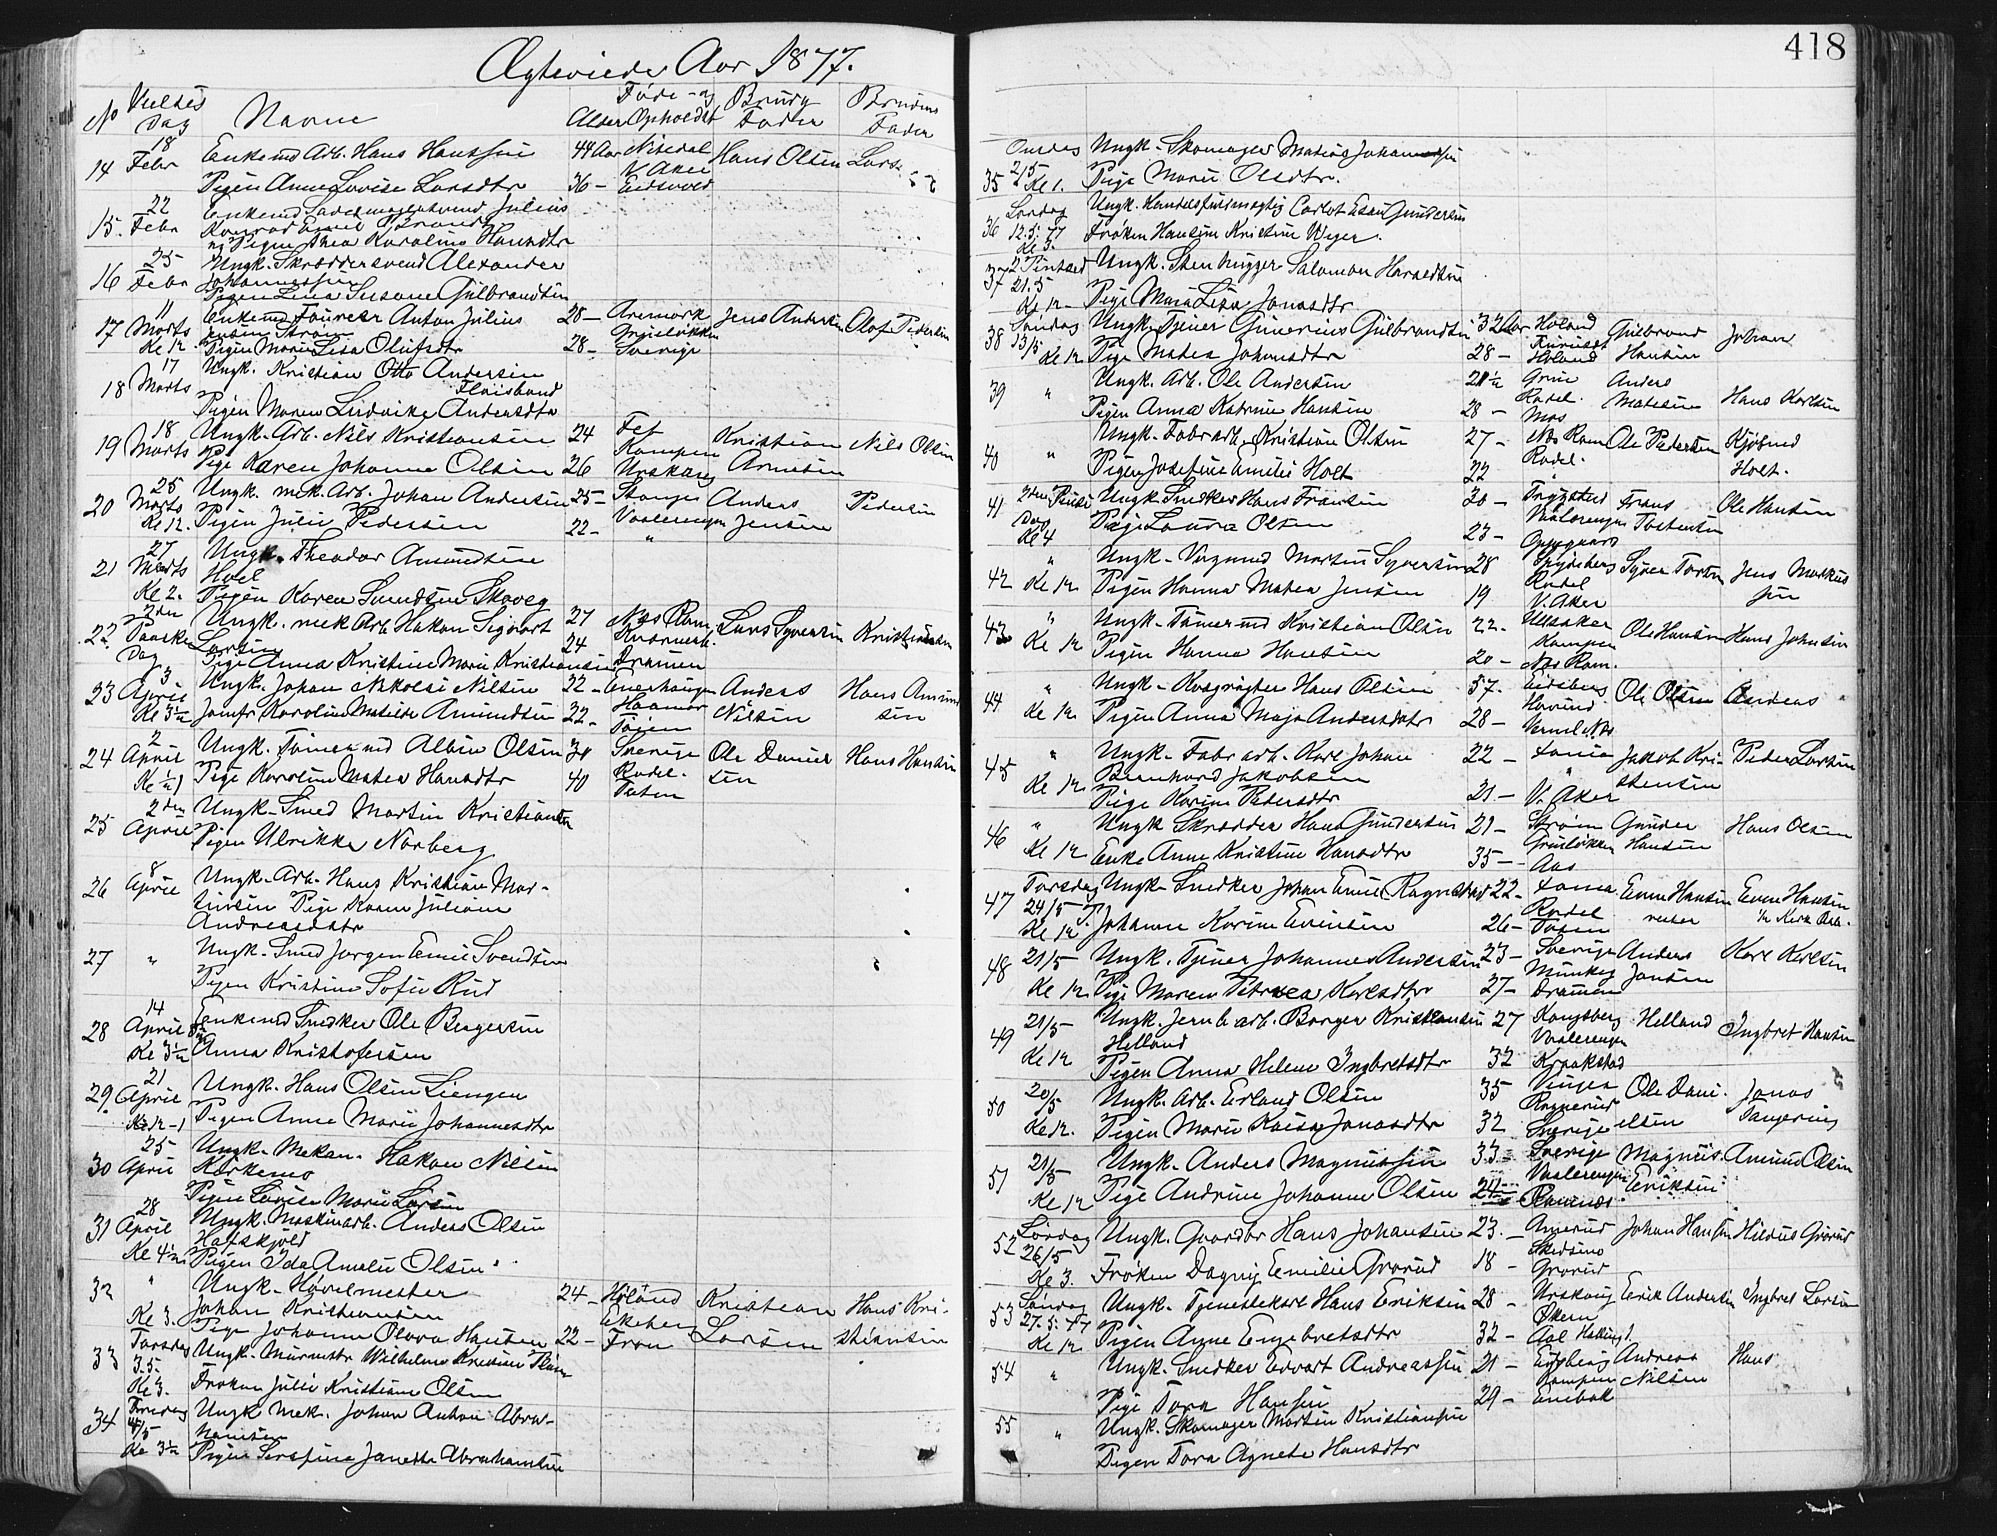 Ægteviede Aar 1877.
No Vielses Dag Navne Alder Føde- og Opholdst Brudg Fader Brudens Fader
14 18 Febr Enkemd Arb. Hans Hanssen 44 Aar Nitedal V. Aker Hans Olsen Lars
Pigen Anne Lovise Larsdtr 36 - Eidsvold
15. 22 Febr Enkemd Julius
Konrad Emil
og Pigen Thea Karoline Hansdtr
16 25 Febr Ungk. Skræddersvend Alexander
Johannessen
Pigen Lina Susanne Gulbrandsen
17 11 Marts Kl 12 Enkemd Anton Julius 28 - Aremark Jens Andersen Olof Pedersen
Jensen Strøm Grünerløkken
Pigen Marie Lisa Olufsdtr 28 - Sverige
18 17 Marts Ungk. Kristian Otto Andersen
Pigen Maren Ludvika Andersdtr
19 18 Marts Ungk. Arb. Nils Kristiansen 24 Fet Kampen Kristian Arnesen Nils Olsen
Pige Karen Johanne Olsen 26 Urskoug
20 25 Marts Kl 12. Ungk. mek. Arb. Johan Andersen 25 - Stange Anders Jensen Pedersen
Pigen Julie Pedersen 22 - Vaalerengen "
21 27 Marts Kl 2. Ungk. Theodor Amundsen
Hoel
Pigen Karen Skoveg
22. 2den Paaske Dag Ungk. mek Arb. Hakon Sigvart 27 Næs Rom. Lars Syversen Kristiansen
Larsen 24
Pige Anna Kristine Marie Kristiansen Dramen
23 3 April Kl 3½ Ungk. Johan Nikolai Nilsen 22 - Enerhaugen Anders Nilsen Hans Amundsen
Jomfr Karoline Matilde Amundsen 22 - Hammer Tøien
24 2 April Kl ½1 Ungk. Tømmermd Albin Olsen 30 Sverige Ole Danielsen Hans Hansen
Pige Karoline Matea Hansdtr 40 Rodel. Toten
25 2den April Ungk. Smed Martin Kristiansen
Pigen Ulrikke Norberg
26 8 April Ungk. Arb. Hans Kristian Mar-
tinsen Pige Karen Juliane
Andreasdtr
27 " Ungk. Smed Jørgen Emil Svendsen
Pigen Kristine Sofie Rud
28 14 April Kl 3½ Enkemd Snedker Ole Bergersen
Anna Kristofersen
29. 21 April Kl 12-1 Ungk. Hans Olsen Liengen
Pigen Anne Marie Johannesdtr
30 25 April Ungk. Mekan. Hakon Nilsen
Kirkemo
Pigen Lovise Marie Larsen
31 28 April Kl 4½ Ungk. Maskinarb. Anders Olsen
Hafskjold
Pigen Ida Amalie Olsen
32 " Kl 3. Ungk. Høvlemester 24 - Høland Kristian Larsen Hans Kri-
Johan Kristiansen Ekeberg stiansen
Pige Johanne Olava Hansen 22 - Fron
33 Torsdag 3.5. Kl 3. Ungk. Murmstr Wilhelm Kristian
Frøken Julie Kristiane Olsen
34 Fredag 4/5 Kl 3½ Ungk Mek. Johan Anton Abra-
hamsen
Pigen Serafine Janette Abrahamsen
418
35 Onsdag 2/5 Kl 1. Ungk. Skomager Matias Johannesen
Pige Marie Olsdtr.
36 Lørdag 12.5.77 Kl 3. Ungk. Handelsfuldmægtig Carlot Esau Gundersen
Frøken Hansine Kristine Weyer.
37 2 Pintsed 21.5 Kl 12 - Ungk. Stenhugger Salomon Haraldsen
Pige Maria Lisa Jonasdtr
38 Søndag 13/5 Kl 12 Ungk. Tjener Gunerius Gulbrandsen 32 Aar Høland Furuset Gulbrand Hansen Johan
Pige Matea Johansdtr 28 - Høland
39 " Ungk. Arb. Ole Andersen 21½ Grue Rodel. Anders Matesen Hans Karlsen
Pigen Anna Katrine Hansen 28 - Mos
40 " Ungk. Fabrarb. Kristian Olsen 27 - Næs Rom Ole Pedersen Kjøbmd Holt.
Pigen Josefine Emilie Holt 22 Rodel.
41 2den Pintse Dag Kl 4 Ungk. Snedker Hans Fransen 30 - Trøgstad Frans Torstensen Ole Hansen
Pige Laura Olsen 23 - Vaalerengen Oppegaard
42 " Kl 12 Ungk. Vognmd Martin Syversen 28 Spydeberg Syver Torsen Jens Markussen
Pigen Hanna Matea Jensen 19 Rodel V. Aker
43 " Kl 12 Ungk. Tømermd Kristian Olsen 22. Ullsaker Kampen Ole Hansen Hans Johnsen
Pigen Hanna Hansen 20 - Næs Rom.
44 " Kl 12 Ungk. Hans Olsen 57. Eidsberg Hovind Ole Olsen Anders
Pigen Anna Maja Andersdatr 28 - Verml.
45 " Kl 12 Ungk. Fabr arb. Karl Johan 22 - samme Jakob Kri- Peder Larsen
Bernhard Jakobsen stensen
Pige Karine Pedersdtr 21 - V. Aker
46 " Kl 12 Ungk Skrædder Hans Gundersen 29 - Strøm Gunder Hansen Hans Olsen
Enke Anne Kristine Hansdtr 35 - Grünløkken Aas
47 Torsdag 24/5 Kl 12 Ungk. Snedker Johan Emil Ragnstad 22 - samme Even Hansen Even Hansen
P. Johanne Karine Evensen 26 - Rodel Toten
48 21/5 Kl 12 Ungk. Tjener Johannes Andersen 23 - Sverige Anders Jonsen Karl Karlsen
Pige Maren Petrea Karlsdtr 27 - Munkeg Dramen
49 21/5 Kl 12 Ungk. Jernb arb. Borger Kristiansen 27 Kongsberg Helland Ingbret Hansen
Helland Vaalerengen
Pigen Anna Helene Ingbretsdtr 32 Kraakstad
50 20/5 Kl 12. Ungk. Arb. Erland Olsen 35 Vinger Ole Dani- Jonas
Pigen Marie Kaisa Jonasdtr 32 Sverige elsen
51 21/5 Kl 12 Ungk. Anders Magnussen 33 - Sverige Magnus Eriksen Amund Olsen
Pige Andrine Johanne Olsen 24 Vaalerengen
52 Lørdag 26/5 Kl 3. Ungk. Gaardbr Hans Johansen 23. - Ammerud Johan Hansen Hildus Grorud
Frøken Dagny Emilie Grorud 18 - Skedsmo Grorud
53 Søndag 27.5.77 Kl 12 Ungk. Tjenestekarl Hans Eriksen 28 - Urskoug Erik Andersen Ingbret Larsen
Pigen Anne Engebretsdtr 32 - Økern Aal Hallingd.
54 " Ungk. Snedker Edvart Andreassen 21 - Eidsberg Andreas Nilsen Hans
Pige Tora Hansen 29 - Kampen Enebak
55 " Ungk. Skomager Martin Kristiansen
Pigen Tora Agnete Hansdtr